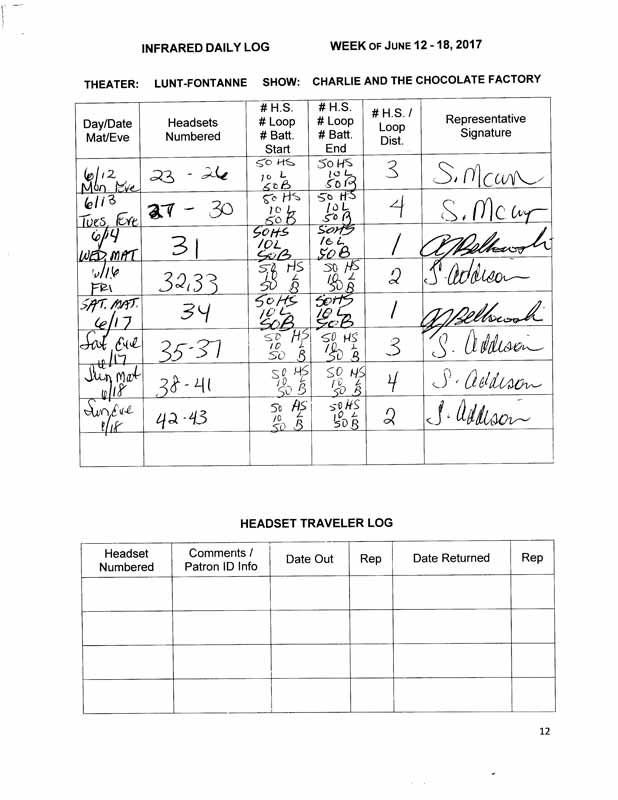 INFRARED DAILY LOG WEEK OF JUNE 12 - 18, 2017
THEATER: LUNT-FONTANNE SHOW: CHARLIE AND THE CHOCOLATE FACTORY
Day/Date Mat/Eve Headsets Numbered # H.S. # Loop # Batt. Start # H.S. # Loop # Batt. End # H.S. / Loop Dist. Representative Signature
6/12 Mon Eve 23 - 26 50 HS 10 L 50 B 50 HS 10 L 50 B 3
6/13 Tues Eve 27 - 30 50 HS 10 L 50 B 50 HS 10 L 50 B 4
6/14 WED. MAT 31 50HS 10L 50B 50HS 10L 50B 1
6/16 FRI 32,33 50 HS 10 L 50 B 50 HS 10 L 50 B 2 S. Addison
SAT. MAT. 6/17 34 50HS 10L 50B 50HS 10L 50B 1
Sat, Eve 6/17 35-37 50 HS 10 L 50 B 50 HS 10 L 50 B 3 S. Addison
Sun Mat 6/18 38-41 50 HS 10 L 50 B 50 HS 10 L 50 B 4 S. Addison
Sun, Eve 6/18 42-43 50 HS 10 L 50 B 50 HS 10 L 50 B 2 S. Addison
HEADSET TRAVELER LOG
Headset Numbered Comments / Patron ID Info Date Out Rep Date Returned Rep
12